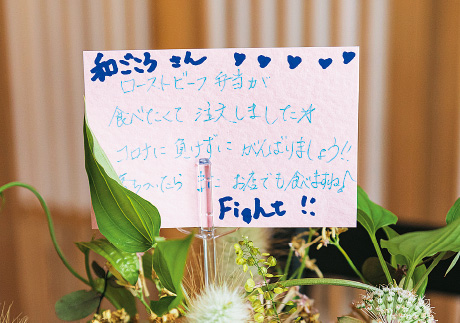 和ごころ さん ♥ ♥ ♥ ♥ ♥
ローストビーフ弁当が
食べたくて 注文しました☆
コロナに 負けずに がんばりましょう!!
ちついたら お店でも 食べますね♪
Fight !!